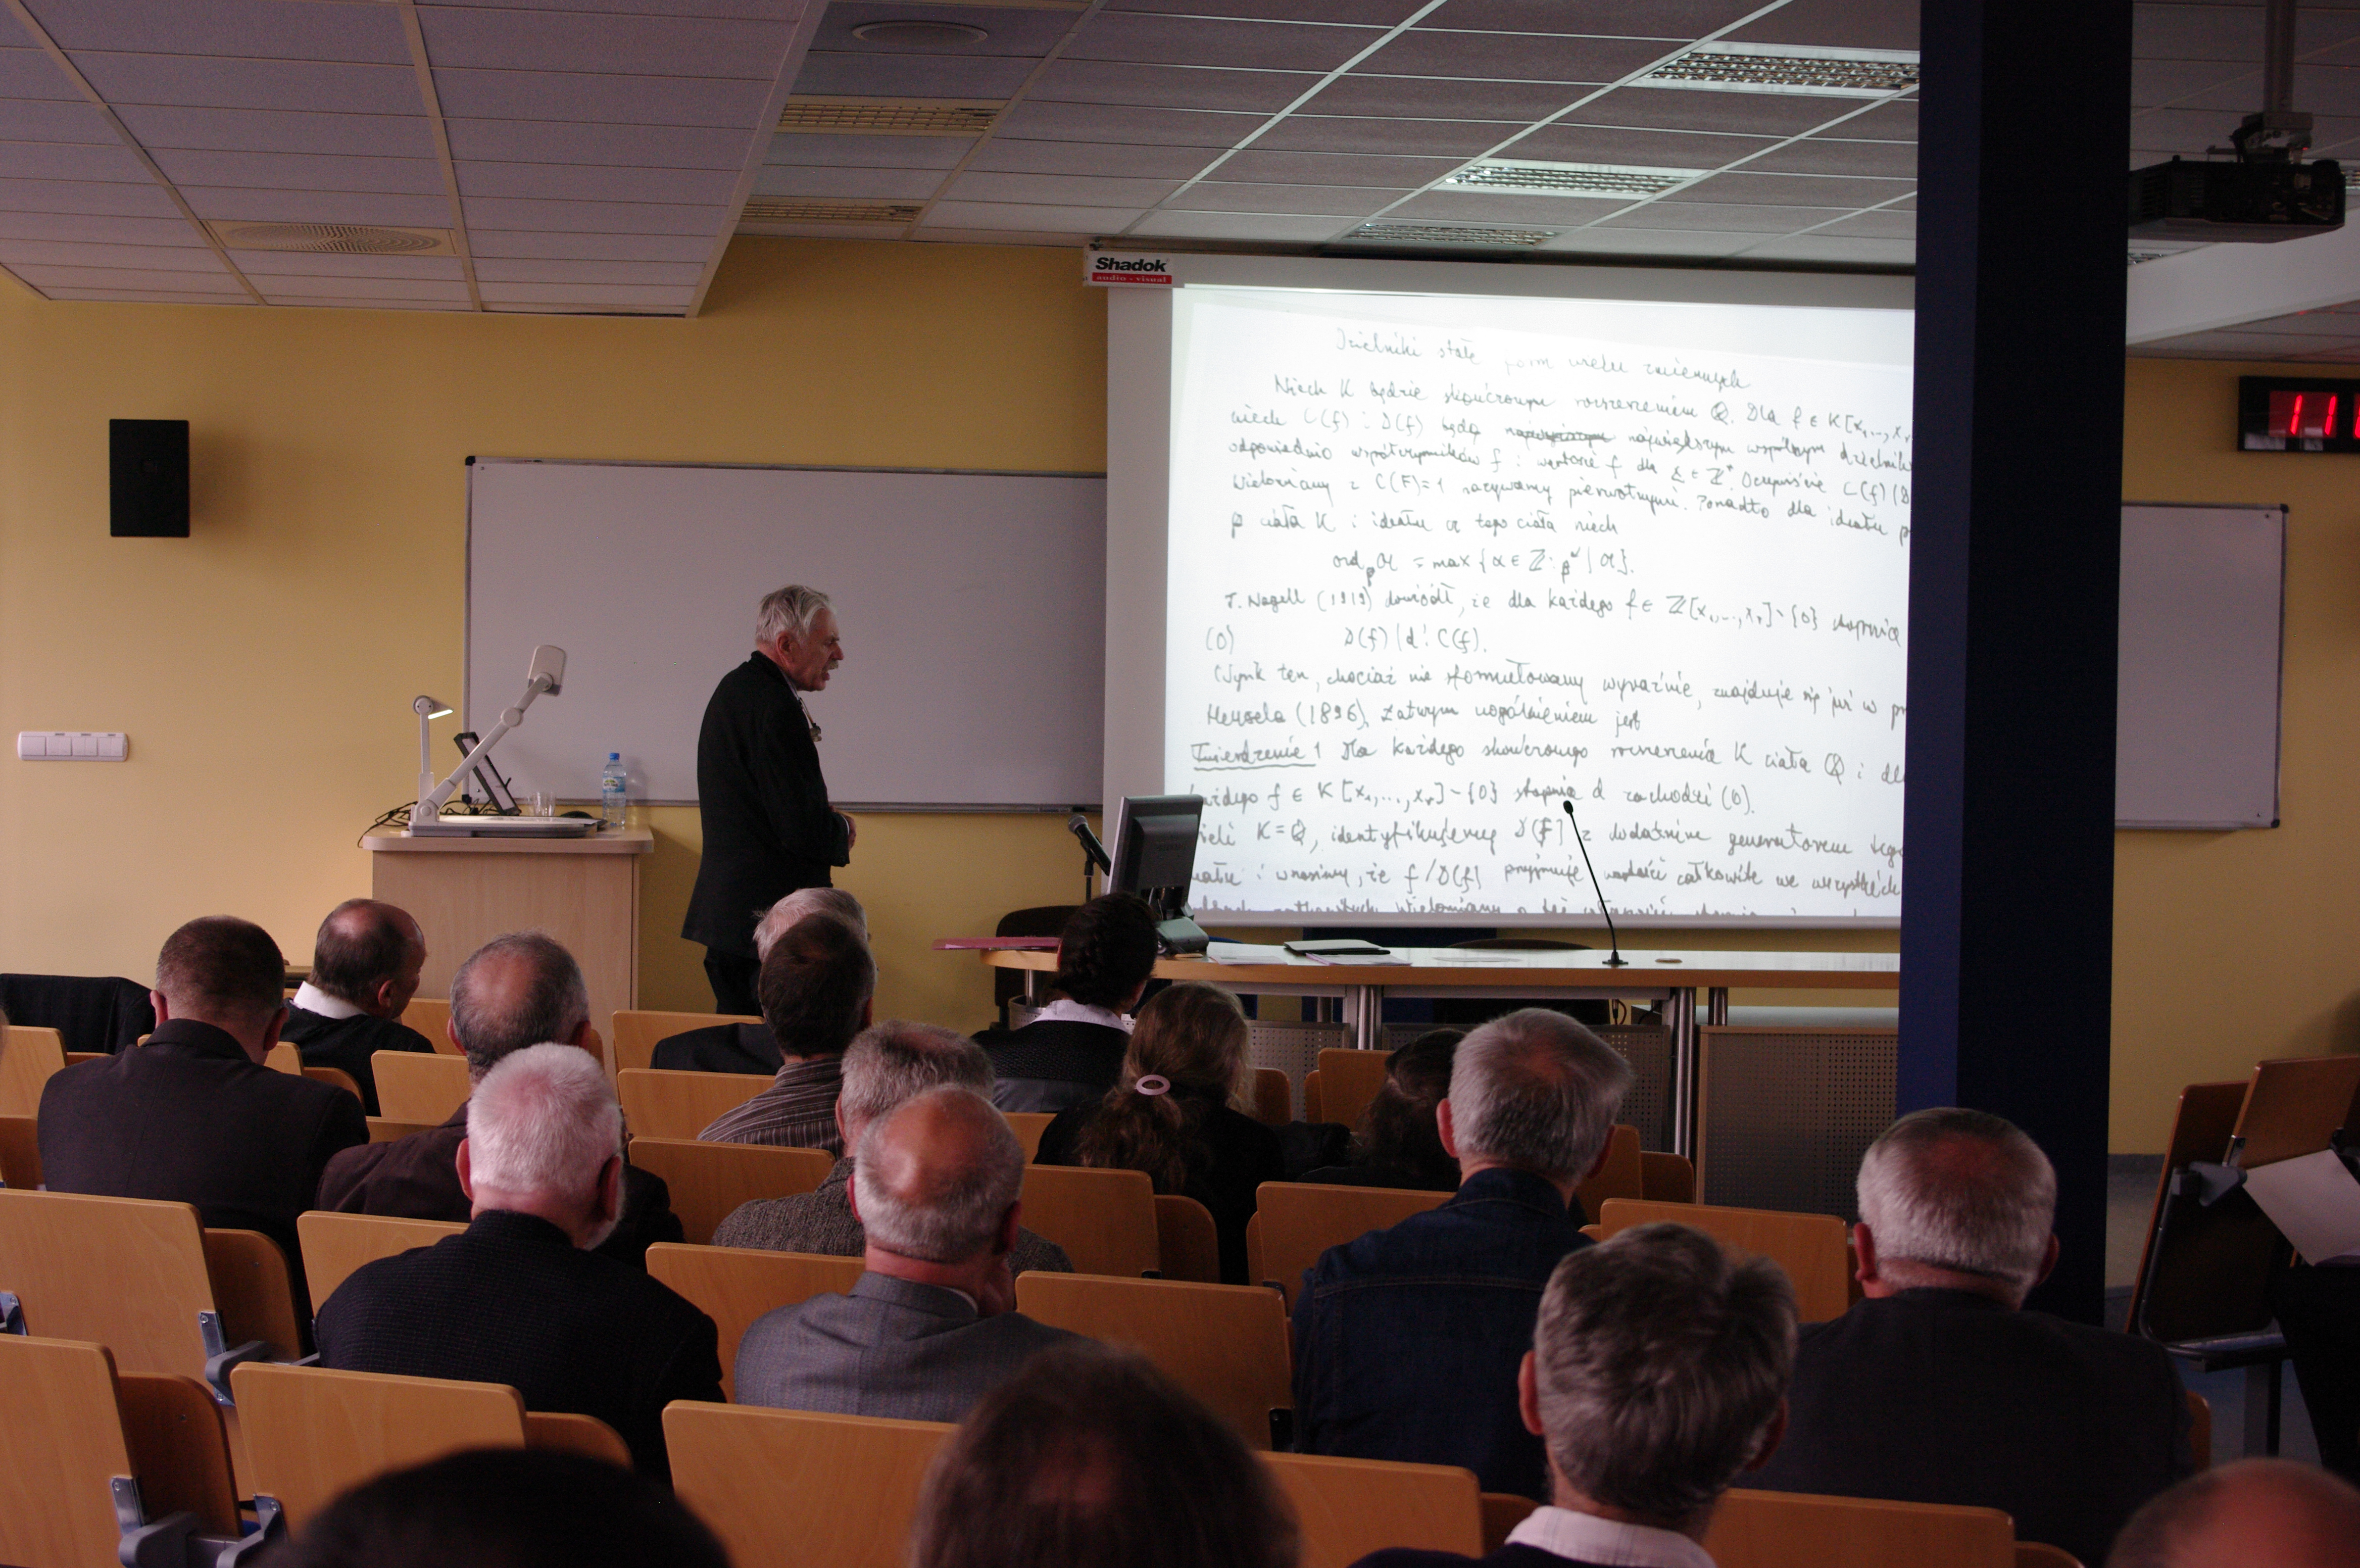 Shadok
audio - visual
Dzielniki stałe form wielu zmiennych
Niech K będzie skończonym rozszerzeniem ℚ. Dla f ∈ K[x₁,...,x
niech C(f) i D(f) będą największym wspólnym dzielnik
odpowiednio współczynników f i wartości f dla ∈ ℤʳ. Oczywiście C(f)|D
Wielomiany z C(F)=1 nazywamy pierwotnymi. Ponadto dla ideału p
𝔭 ciała K i ideału 𝔞 tego ciała niech
ord_𝔭 𝔞 = max{α ∈ ℤ: 𝔭^α | 𝔞}.
T. Nagell (1919) dowiódł, że dla każdego f ∈ ℤ[x₁,...,xᵣ]∖{0} stopnia
(0) D(f) | d! C(f).
Wynik ten, chociaż nie sformułowany wyraźnie, znajduje się już w pr
Hensela (1896). Łatwym uogólnieniem jest
Twierdzenie 1 Dla każdego skończonego rozszerzenia K ciała ℚ i dl
każdego f ∈ K[x₁,...,xᵣ]∖{0} stopnia d zachodzi (0).
żeli K=ℚ, identyfikujemy D(f) z dodatnim generatorem tego
ideału i wnosimy, że f/D(f) przyjmuje wartości całkowite we wszystkich
11